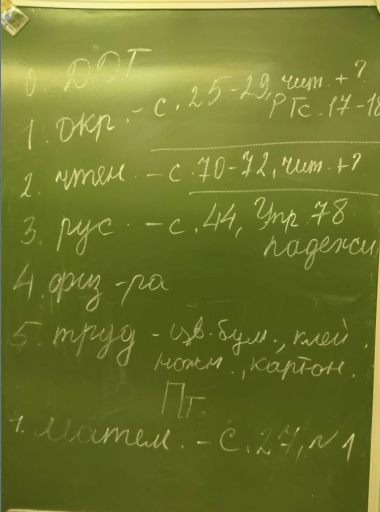 0. ДДТ
1. окр. - с. 25-29, чит. + ?
РТ с. 17-18
2. чтен. - с. 70-72, чит. + ?
3. рус. - с. 44, Упр. 78
падежи
4. физ-ра
5. труд - цв. бум., клей,
ножн., картон.
Пт.
1. матем. - с. 27, №1